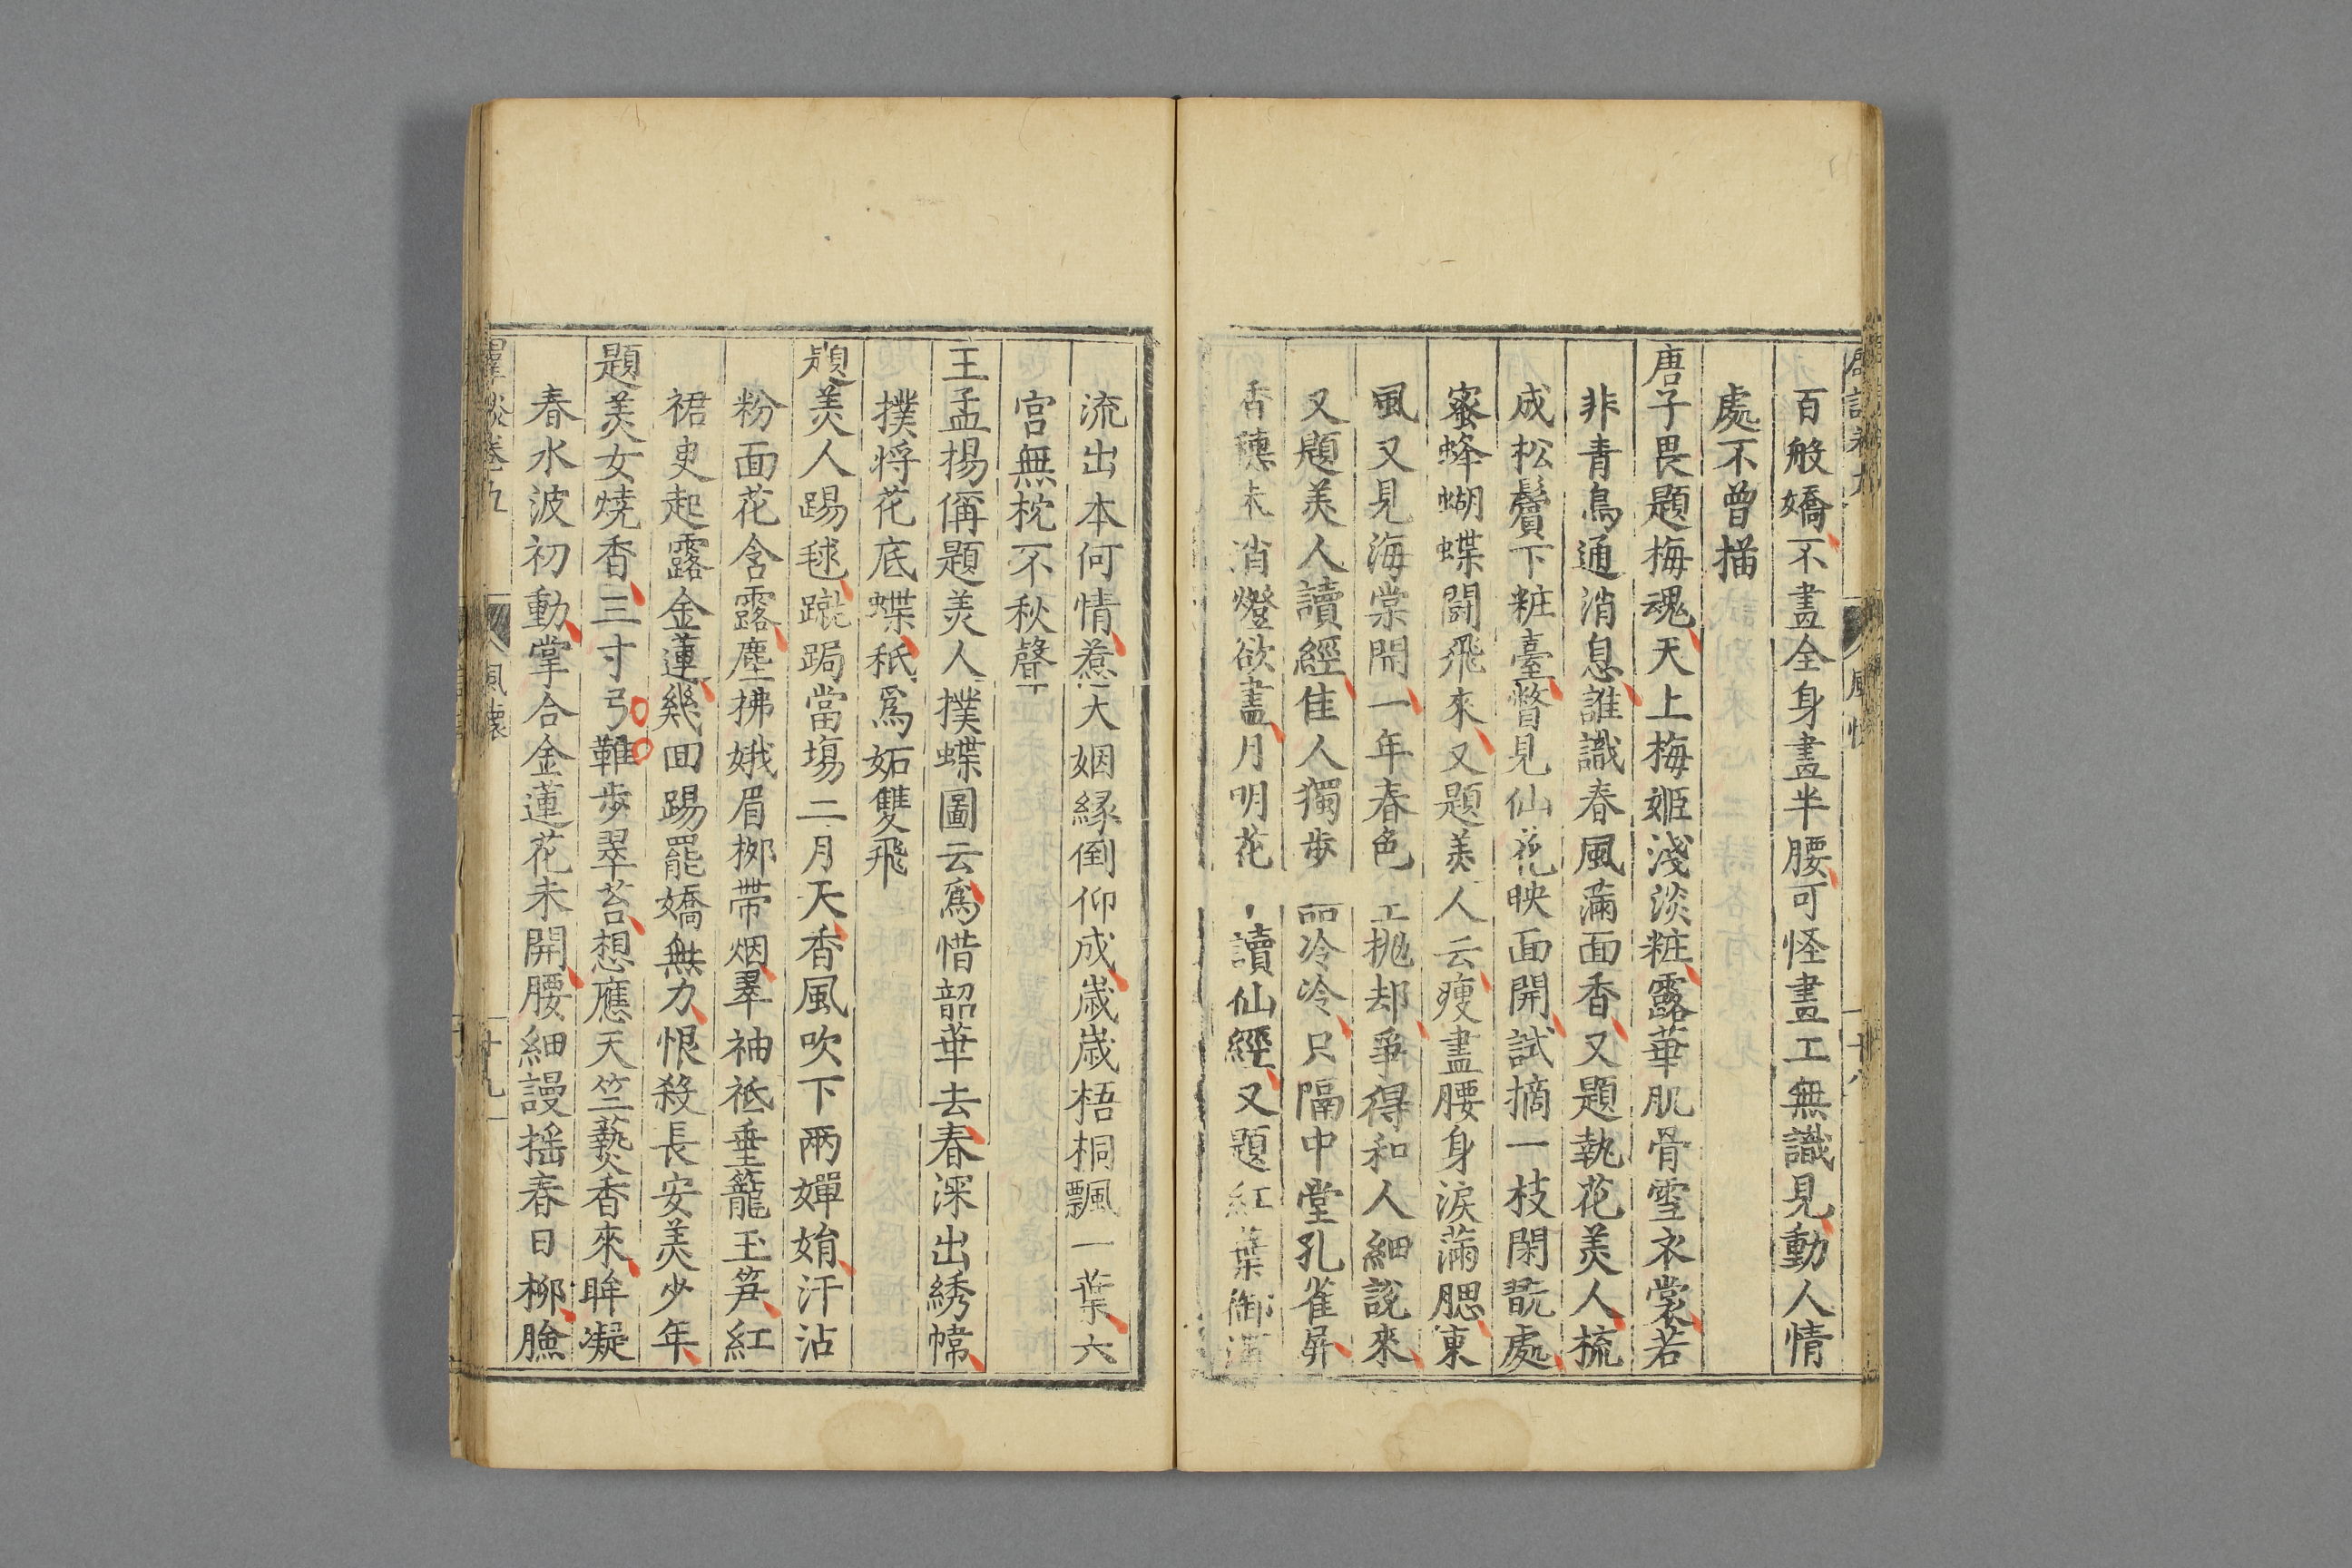 百般嬌不畫全身畫半腰可怪畫工無識見動人情
處不曾描
唐子畏題梅魂天上梅姬淺淡粧露華肌骨雪衣裳若
非青鳥通消息誰識春風滿面香又題執花美人梳
成松鬢下粧臺瞥見仙花映面開試摘一枝閑翫處
蜜蜂蝴蝶鬬飛來又題美人云瘦盡腰身淚滿腮東
風又見海棠開一年春色拋却爭得和人細說來
又題美人讀經佳人獨步冷冷只隔中堂孔雀屏
香穗未消燈欲盡月明花讀仙經又題紅葉御溝
流出本何情惹天姻緣倒仰成歲歲梧桐飄一葉六
宮無枕不秋聲
王孟揚偁題美人撲蝶圖云爲惜韶華去春深出綉幃
撲將花底蝶秖爲妬雙飛
題美人踢毬蹴踘當場二月天香風吹下兩嬋娟汗沾
粉面花含露塵拂娥眉柳帶烟翠袖袛垂籠玉笋紅
裙叓起露金蓮幾回踢罷嬌無力恨殺長安美少年
題美女燒香三寸弓鞋步翠苔想應天竺爇香來眸凝
春水波初動掌合金蓮花未開腰細謾搖春日柳臉
卷五
風懷
十九